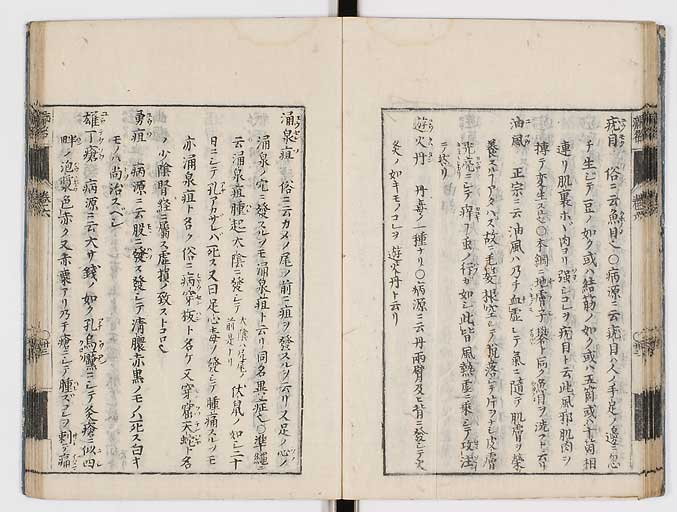 疣目 俗ニ云魚目也〇病源ニ云疣目ハ人ノ手足ノ邊ニ忽
チ生シテ豆ノ如ク或ハ結筋ノ如ク或ハ五箇或ハ十箇相
連リ肌裏
油風 正宗ニ云油風ハ乃チ血虚シテ氣ニ隨テ肌膚ヲ榮
養スルコトアタハス故ニ毛髮根空シテ脱落シテ片ヲナシ皮膚
光亮ニシテ痒キコト虫ノ行カ如シ此皆風熱虚ニ乘シテ攻注
遊火丹 丹毒ノ一種ナリ〇病源ニ云丹兩臂及ヒ背ニ發シテ火
灸ノ如キモノコレヲ遊火丹ト云リ
涌泉疽 俗ニ云カメノ尾ノ前ニ疽ヲ發スルヲ云リ又足ノ心ノ
涌泉ノ穴ニ發スルヲモ涌泉疽ト云リ同名異症也〇準繩ニ
云涌泉疽腫起大陰ニ發シテ 伏鼠ノ如シ二十
日ニシテ孔アカサレハ死ス又曰足心毒ノ發シテ腫痛スルヲモ
亦涌泉疽ト名ク俗ニ病穿板ト名ケ又穿窟天蛇ト名
ク少陰腎經ニ屬ス虚損ノ致ストコロ也
勇疽 病源ニ云股ニ發ス發シテ清膿赤黒ノモノハ死ス白キ
モノハ尚治スベシ
雄丁瘡 病源ニ云大サ錢ノ如ク孔烏黶ニシテ灸瘡ニ似四
畔ノ泡漿色赤ク又赤粟アリ乃チ瘡ニシテ腫ズコレヲ刺テ痛